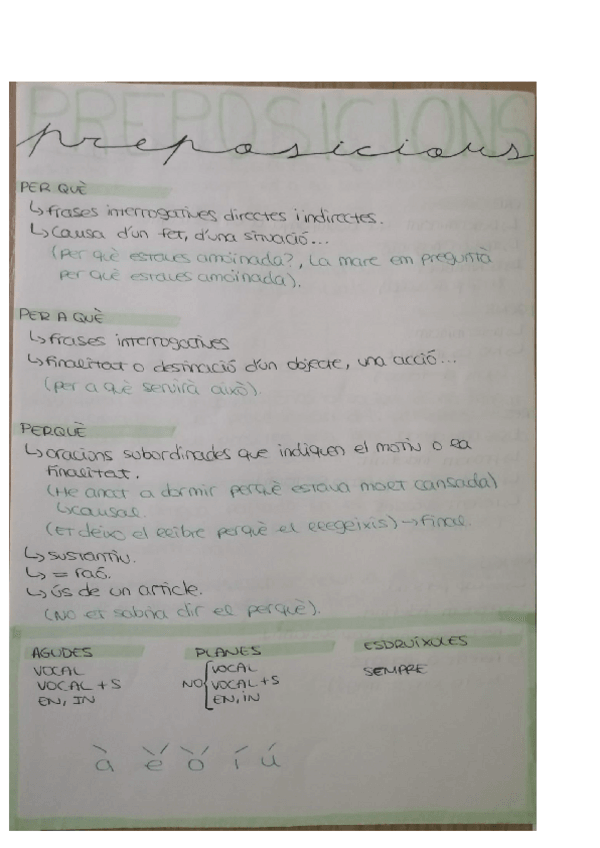 PREPOSICIONS
preposicions
PER QUÈ
↳ frases interrogatives directes i indirectes.
↳ causa d'un fet, d'una situació...
(per què estaves amoïnada?, la mare em preguntà
per què estaves amoïnada).
PER A QUÈ
↳ frases interrogatives
↳ finalitat o destinació d'un objecte, una acció...
(per a què servirà això).
PERQUÈ
↳ oracions subordinades que indiquen el motiu o la
finalitat.
(He anat a dormir perquè estava molt cansada)
↳ causal.
(Et deixo el llibre perquè el llegeixis) → final.
↳ sustantiu.
↳ = raó.
↳ ús de un article.
(No et sabria dir el perquè).
AGUDES
VOCAL
VOCAL + S
EN, IN
PLANES
NO { VOCAL
VOCAL + S
EN, IN
ESDRUÏXULES
SEMPRE
à è́ ò́ í ú